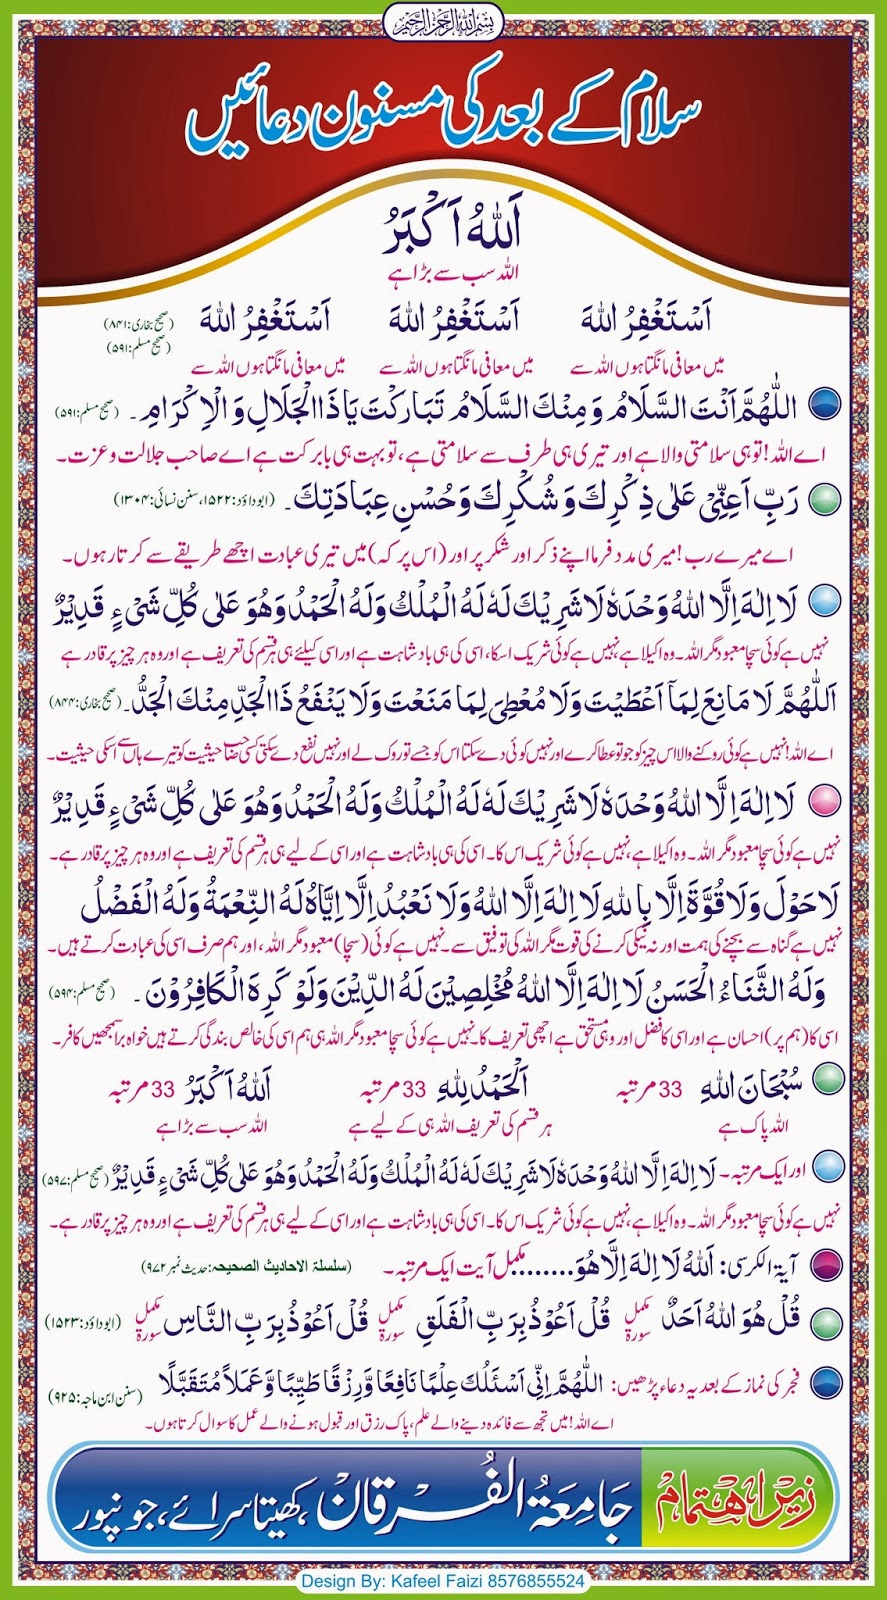 بسم الله الرحمن الرحيم
سلام کے بعد کی مسنون دعائیں
اَللهُ اَكْبَرُ
اللہ سب سے بڑا ہے
اَسْتَغْفِرُ اللهَ اَسْتَغْفِرُ اللهَ اَسْتَغْفِرُ اللهَ (صحیح بخاری: ۸۴۱)
(صحیح مسلم: ۵۹۱)
میں معافی مانگتا ہوں اللہ سے میں معافی مانگتا ہوں اللہ سے میں معافی مانگتا ہوں اللہ سے
اَللّٰهُمَّ اَنْتَ السَّلَامُ وَمِنْكَ السَّلَامُ تَبَارَكْتَ يَاذَا الْجَلَالِ وَالْاِكْرَامِ۔ (صحیح مسلم: ۵۹۱)
اے اللہ! تو ہی سلامتی والا ہے اور تیری ہی طرف سے سلامتی ہے، تو بہت ہی بابرکت ہے اے صاحب جلالت وعزت۔
رَبِّ اَعِنِّيْ عَلٰى ذِكْرِكَ وَشُكْرِكَ وَحُسْنِ عِبَادَتِكَ۔ (ابوداؤد: ۱۵۲۲، سنن نسائی: ۱۳۰۴)
اے میرے رب! میری مدد فرما اپنے ذکر اور شکر پر اور (اس پر کہ) میں تیری عبادت اچھے طریقے سے کرتا رہوں۔
لَا اِلٰهَ اِلَّا اللهُ وَحْدَهٗ لَا شَرِيْكَ لَهٗ لَهُ الْمُلْكُ وَلَهُ الْحَمْدُ وَهُوَ عَلٰى كُلِّ شَيْءٍ قَدِيْرٌ
نہیں ہے کوئی سچا معبود مگر اللہ۔ وہ اکیلا ہے، نہیں ہے کوئی شریک اسکا، اسی کی ہی بادشاہت ہے اور اسی کیلئے ہی ہر قسم کی تعریف ہے اور وہ ہر چیز پر قادر ہے
اَللّٰهُمَّ لَا مَانِعَ لِمَا اَعْطَيْتَ وَلَا مُعْطِيَ لِمَا مَنَعْتَ وَلَا يَنْفَعُ ذَا الْجَدِّ مِنْكَ الْجَدُّ۔ (صحیح بخاری: ۸۴۴)
اے اللہ! نہیں ہے کوئی روکنے والا اس چیز کو جو تو عطا کرے اور نہیں کوئی دے سکتا اس کو جسے تو روک لے اور نہیں نفع دے سکتی کسی صاحب حیثیت کو تیرے ہاں اسکی حیثیت۔
لَا اِلٰهَ اِلَّا اللهُ وَحْدَهٗ لَا شَرِيْكَ لَهٗ لَهُ الْمُلْكُ وَلَهُ الْحَمْدُ وَهُوَ عَلٰى كُلِّ شَيْءٍ قَدِيْرٌ
نہیں ہے کوئی سچا معبود مگر اللہ۔ وہ اکیلا ہے، نہیں ہے کوئی شریک اس کا۔ اسی کی ہی بادشاہت ہے اور اسی کے لیے ہی ہر قسم کی تعریف ہے اور وہ ہر چیز پر قادر ہے۔
لَا حَوْلَ وَلَا قُوَّةَ اِلَّا بِاللهِ لَا اِلٰهَ اِلَّا اللهُ وَلَا نَعْبُدُ اِلَّا اِيَّاهُ لَهُ النِّعْمَةُ وَلَهُ الْفَضْلُ
نہیں ہے گناہ سے بچنے کی ہمت اور نہ نیکی کرنے کی قوت مگر اللہ کی توفیق سے۔ نہیں ہے کوئی (سچا) معبود مگر اللہ، اور ہم صرف اسی کی عبادت کرتے ہیں۔
وَلَهُ الثَّنَاءُ الْحَسَنُ لَا اِلٰهَ اِلَّا اللهُ مُخْلِصِيْنَ لَهُ الدِّيْنَ وَلَوْ كَرِهَ الْكَافِرُوْنَ۔ (صحیح مسلم: ۵۹۴)
اسی کا (ہم پر) احسان ہے اور اسی کا فضل اور وہی مستحق ہے اچھی تعریف کا۔ نہیں ہے کوئی سچا معبود مگر اللہ ہی ہم اسی کی خالص بندگی کرتے ہیں خواہ برا سمجھیں کافر۔
سُبْحَانَ اللهِ 33 مرتبہ اَلْحَمْدُ لِلّٰهِ 33 مرتبہ اَللهُ اَكْبَرُ 33 مرتبہ
اللہ پاک ہے ہر قسم کی تعریف اللہ ہی کے لیے ہے اللہ سب سے بڑا ہے
اور ایک مرتبہ۔ لَا اِلٰهَ اِلَّا اللهُ وَحْدَهٗ لَا شَرِيْكَ لَهٗ لَهُ الْمُلْكُ وَلَهُ الْحَمْدُ وَهُوَ عَلٰى كُلِّ شَيْءٍ قَدِيْرٌ (صحیح مسلم: ۵۹۷)
نہیں ہے کوئی سچا معبود مگر اللہ۔ وہ اکیلا ہے، نہیں ہے کوئی شریک اس کا۔ اسی کی ہی بادشاہت ہے اور اسی کے لیے ہی ہر قسم کی تعریف ہے اور وہ ہر چیز پر قادر ہے۔
آیۃ الکرسی: اَللهُ لَا اِلٰهَ اِلَّا هُوَ........ مکمل آیت ایک مرتبہ۔ (سلسلة الاحاديث الصحيحه: حدیث نمبر ۹۷۲)
قُلْ هُوَ اللهُ اَحَدٌ مکمل سورۃ قُلْ اَعُوْذُ بِرَبِّ الْفَلَقِ مکمل سورۃ قُلْ اَعُوْذُ بِرَبِّ النَّاسِ مکمل سورۃ (ابوداؤد: ۱۵۲۳)
فجر کی نماز کے بعد یہ دعاء پڑھیں: اَللّٰهُمَّ اِنِّيْ اَسْئَلُكَ عِلْمًا نَافِعًا وَّرِزْقًا طَيِّبًا وَّعَمَلًا مُتَقَبَّلًا (سنن ابن ماجہ: ۹۲۵)
اے اللہ! میں تجھ سے فائدہ دینے والے علم، پاک رزق اور قبول ہونے والے عمل کا سوال کرتا ہوں۔
زیر اہتمام جَامِعَةُ الْفُرْقَان، کھیتا سرائے، جونپور
Design By: Kafeel Faizi 8576855524